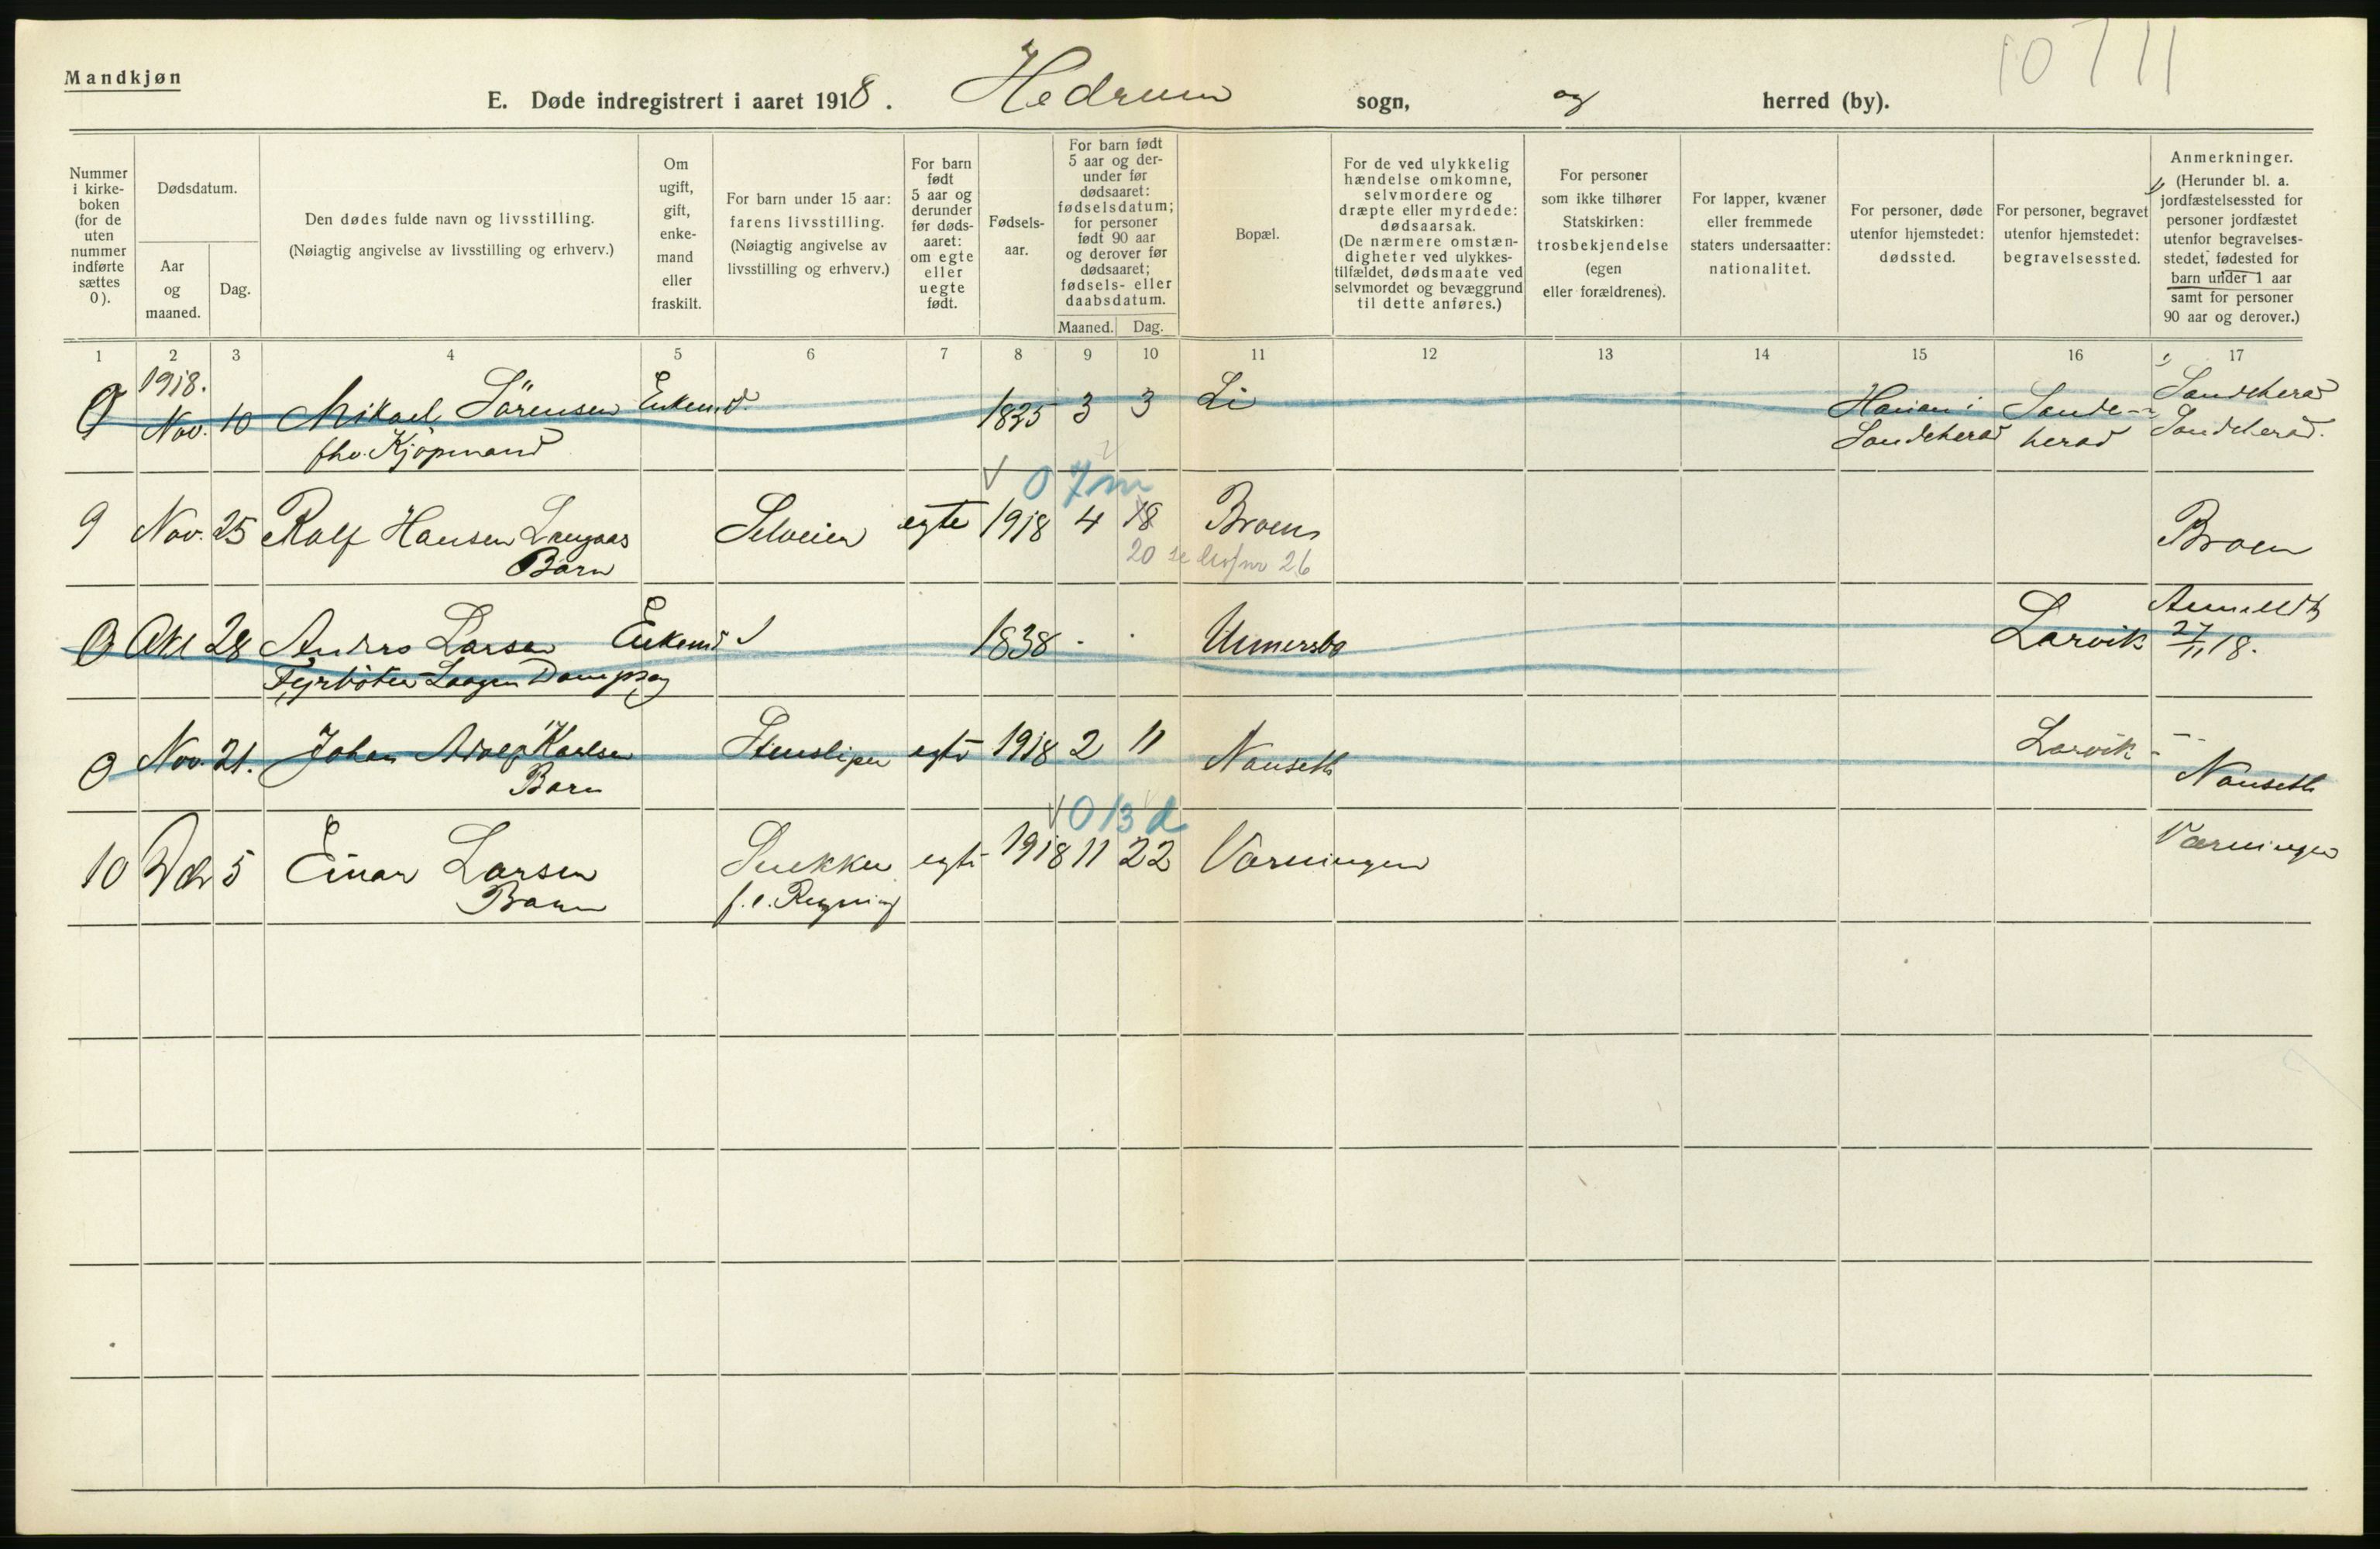 10711
Mandkjøn
E. Døde indregistrert i aaret 1918. Hedrum sogn, og herred (by).
Nummer i kirke-boken (for de uten nummer indførte sættes 0).
Dødsdatum.
Aar og maaned.
Dag.
Den dødes fulde navn og livsstilling.
(Nøiagtig angivelse av livsstilling og erhverv.)
Om ugift, gift, enke-mand eller fraskilt.
For barn under 15 aar: farens livsstilling.
(Nøiagtig angivelse av livsstilling og erhverv.)
For barn født 5 aar og derunder før døds-aaret: om egte eller uegte født.
Fødsels-aar.
For barn født 5 aar og der-under før dødsaaret: fødselsdatum; for personer født 90 aar og derover før dødsaaret; fødsels- eller daabsdatum.
Maaned. Dag.
Bopæl.
For de ved ulykkelig hændelse omkomne, selvmordere og dræpte eller myrdede: dødsaarsak.
(De nærmere omstæn-digheter ved ulykkes-tilfældet, dødsmaate ved selvmordet og bevæggrund til dette anføres.)
For personer som ikke tilhører Statskirken: trosbekjendelse (egen eller forældrenes).
For lapper, kvæner eller fremmede staters undersaatter: nationalitet.
For personer, døde utenfor hjemstedet: dødssted.
For personer, begravet utenfor hjemstedet: begravelsessted.
Anmerkninger.
(Herunder bl. a. jordfæstelsessted for personer jordfæstet utenfor begravelses-stedet, fødested for barn under 1 aar samt for personer 90 aar og derover.)
1 2 3 4 5 6 7 8 9 10 11 12 13 14 15 16 17
1918.
0 Nov. 10 Mikael Sörensen Enkemd. 1825 3 3 Li Sandeherad
fhv. Kjöpmand Sandeherad Sande-herad Sandeherad.
0 7 m
9 Nov. 25 Rolf Hansen Langaas Selveier egte 1918 4 18 Broen Broen
Barn 20 se 26
0 Okt 28 Anders Larsen Enkemd 1838 - - Ummersbo Larvik Anmeldt 27/11 18.
Fyrböter Laagen Dampsag
0 Nov. 21. Johan Adolf Karlsen Stensliper egte 1918 2 11 Nanseth Larvik -- Nanseth
Barn
0 13 d
10 Dcb 5 Einar Larsen Snekker egte 1918 11 22 Varningen Varningen
Barn f. e. Regning